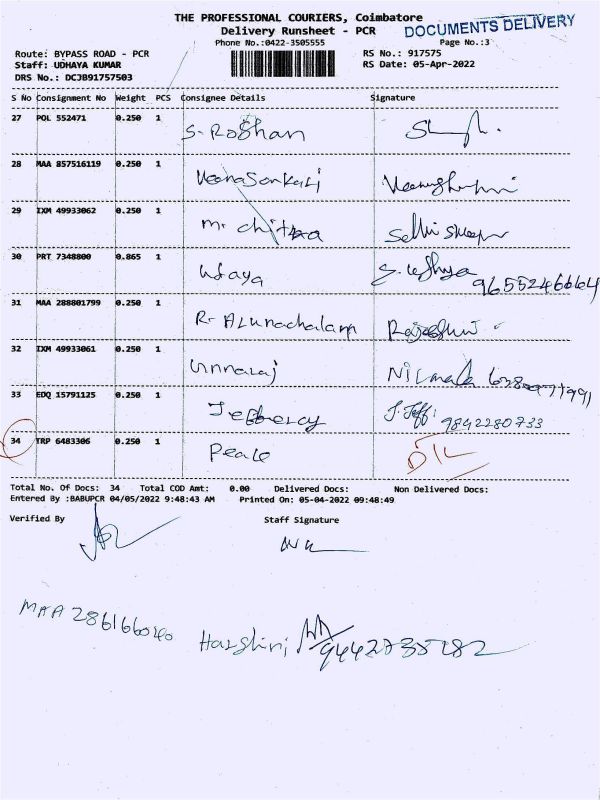 THE PROFESSIONAL COURIERS, Coimbatore
DOCUMENTS DELIVERY
Delivery Runsheet - PCR
Phone No.:0422-3505555
Page No.:3
Route: BYPASS ROAD - PCR
RS No.: 917575
Staff: UDHAYA KUMAR
RS Date: 05-Apr-2022
DRS No.: DCJB91757503
S No Consignment No Weight PCS Consignee Details Signature
27 POL 552471 0.250 1 S. Roshan
28 MAA 857516119 0.250 1
29 IXM 49933062 0.250 1 Mr chithra
30 PRT 7348800 0.865 1 Udaya 9655246664
31 MAA 288801799 0.250 1 R. Arunachalam
32 IXM 49933061 0.250 1 Nirmala
33 EDQ 15791125 0.250 1 J. Jeff: 9842280733
34 TRP 6483306 0.250 1
Total No. Of Docs: 34 Total COD Amt: 0.00 Delivered Docs: Non Delivered Docs:
Entered By :BABUPCR 04/05/2022 9:48:43 AM Printed On: 05-04-2022 09:48:49
Verified By Staff Signature
MAA 286166040 Harshini